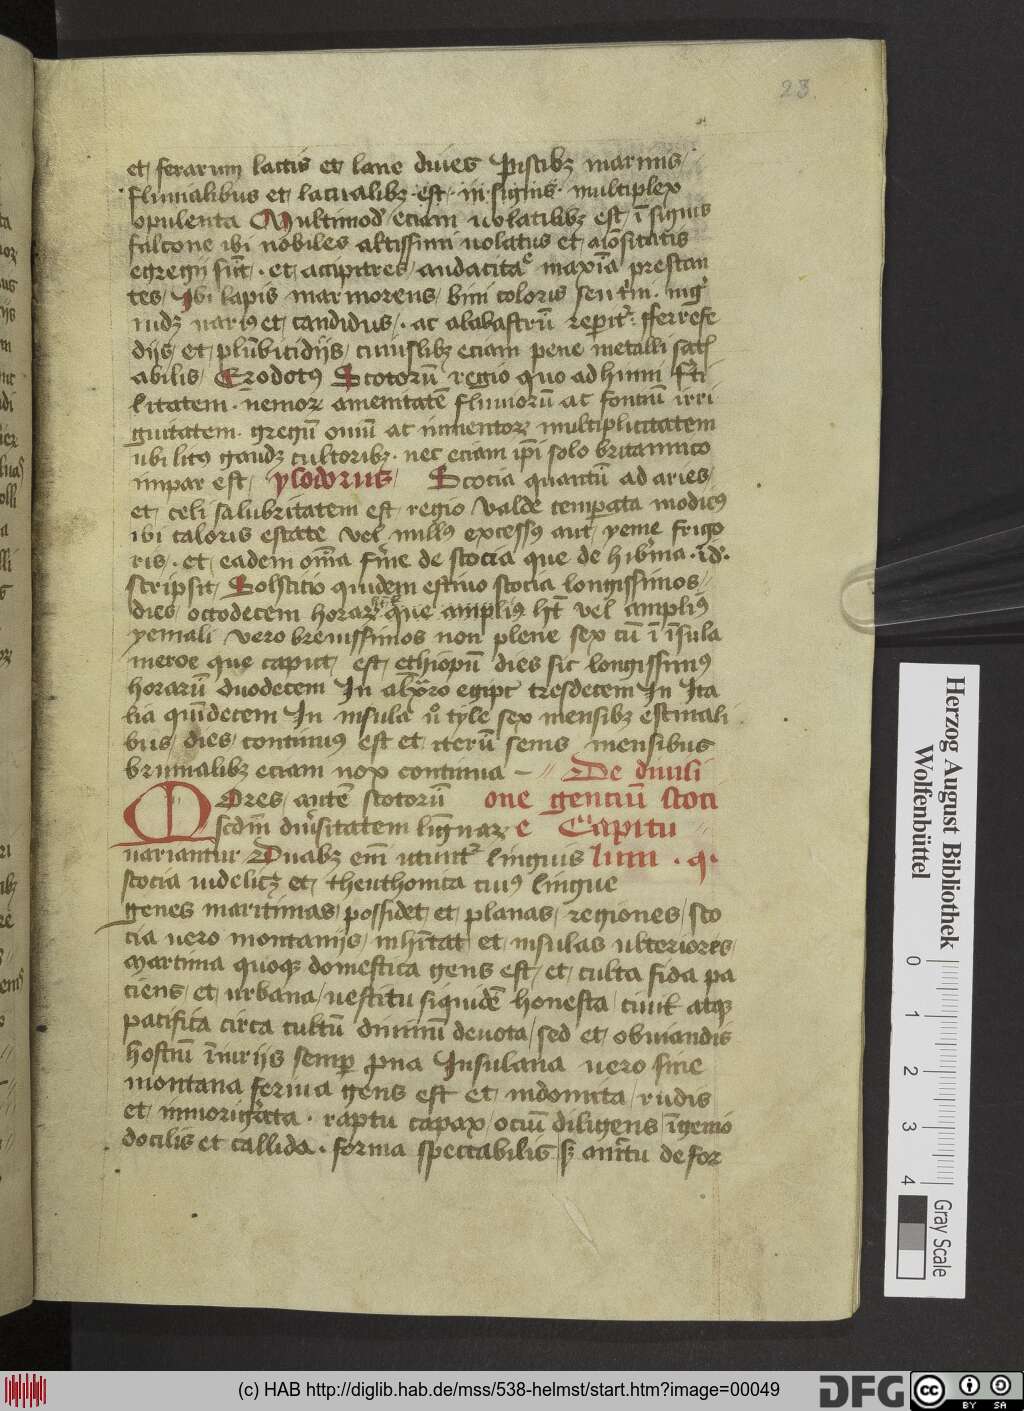 23
et ferarum lactis et lane diues Piscibꝫ marinis
fluuialibus et lacualibꝫ est in signis multiplex
opulenta Multimod eciam uolatilibꝫ est ī signis
falcone ibi nobiles altissimi uolatus et
egregij sūt et accipitres audacita maxīa prestan
tes Ibi lapis marmoreus bini coloris seu
et candidus ac alabastrū reperit fferrefo
dijs et plūbicidijs cuiuslibꝫ eciam pene metalli
abilis Erodotꝰ Scotorū regio quo ad humi
litatem nemoꝝ amenitatē fluuiorū ac fontiū irri
guitatem gregū ouiū ac iumentoꝝ multiplicitatem
ubi litꝰ gaudꝫ cultoribꝫ nec eciam ip̄i solo britannico
impar est ysodorus Scocia quantū ad aries
et celi salubritatem est regio valde temperata modicꝰ
ibi caloris estate vel nullꝰ excessꝰ aut yeme frigo
ris et eadem om̄ia de scocia que de id
scripsit Solsticio quidem estiuo scocia longissimos
dies octodecem horaꝝ que ampliꝰ ht vel ampliꝰ
yemali vero breuissimos non plene sex cū ī īsula
meroe que caput est ethiopū dies sic longissimꝰ
horarū duodecem In egipt tresdecem In Ita
lia quīdecem In insula tyle sex mensibꝫ estiuali
bus dies continuꝰ est et iterū senis mensibus
brumalibꝫ eciam nox continua De diuisi
Mores autē scotorū one genciū scoci
scdm diūsitatem līguaꝝ e Capitu
uariantur Duabꝫ em̄ utunt linguis lum . 9.
scocia uidelicꝫ et theuthonica cuiꝰ lingue
genes maritimas possidet et planas regiones sco
cia uero montanijs inhītat et insulas ulteriores
Maritima quoqꝫ domestica gens est et culta fida pa
ciens et urbana uestitu siquidē honesta ciuil atqꝫ
pacifica circa cultū diuinū deuota sed et obuiandis
hostiū īiurijs semper p̄na Insulana uero siue
montana feriua gens est et indomita rudis
et inmorigerata raptu capax ociū diligens īgenio
docilis et callida forma spectabilis sꝫ amictu defor
Herzog August Bibliothek
Wolfenbüttel
0 1 2 3 4
Gray Scale
(c) HAB http://diglib.hab.de/mss/538-helmst/start.htm?image=00049
DFG
cc BY SA